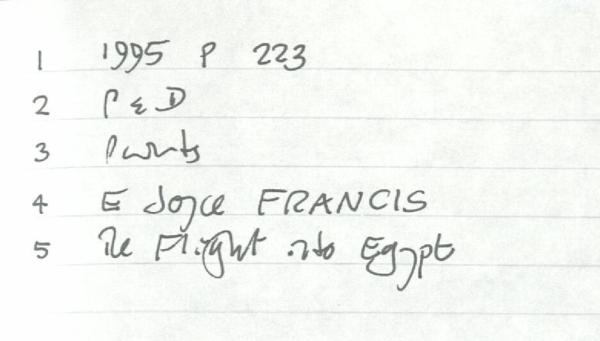 1 1995 P 223
2 P & D
3 Prints
4 E Joyce FRANCIS
5 The Flight into Egypt